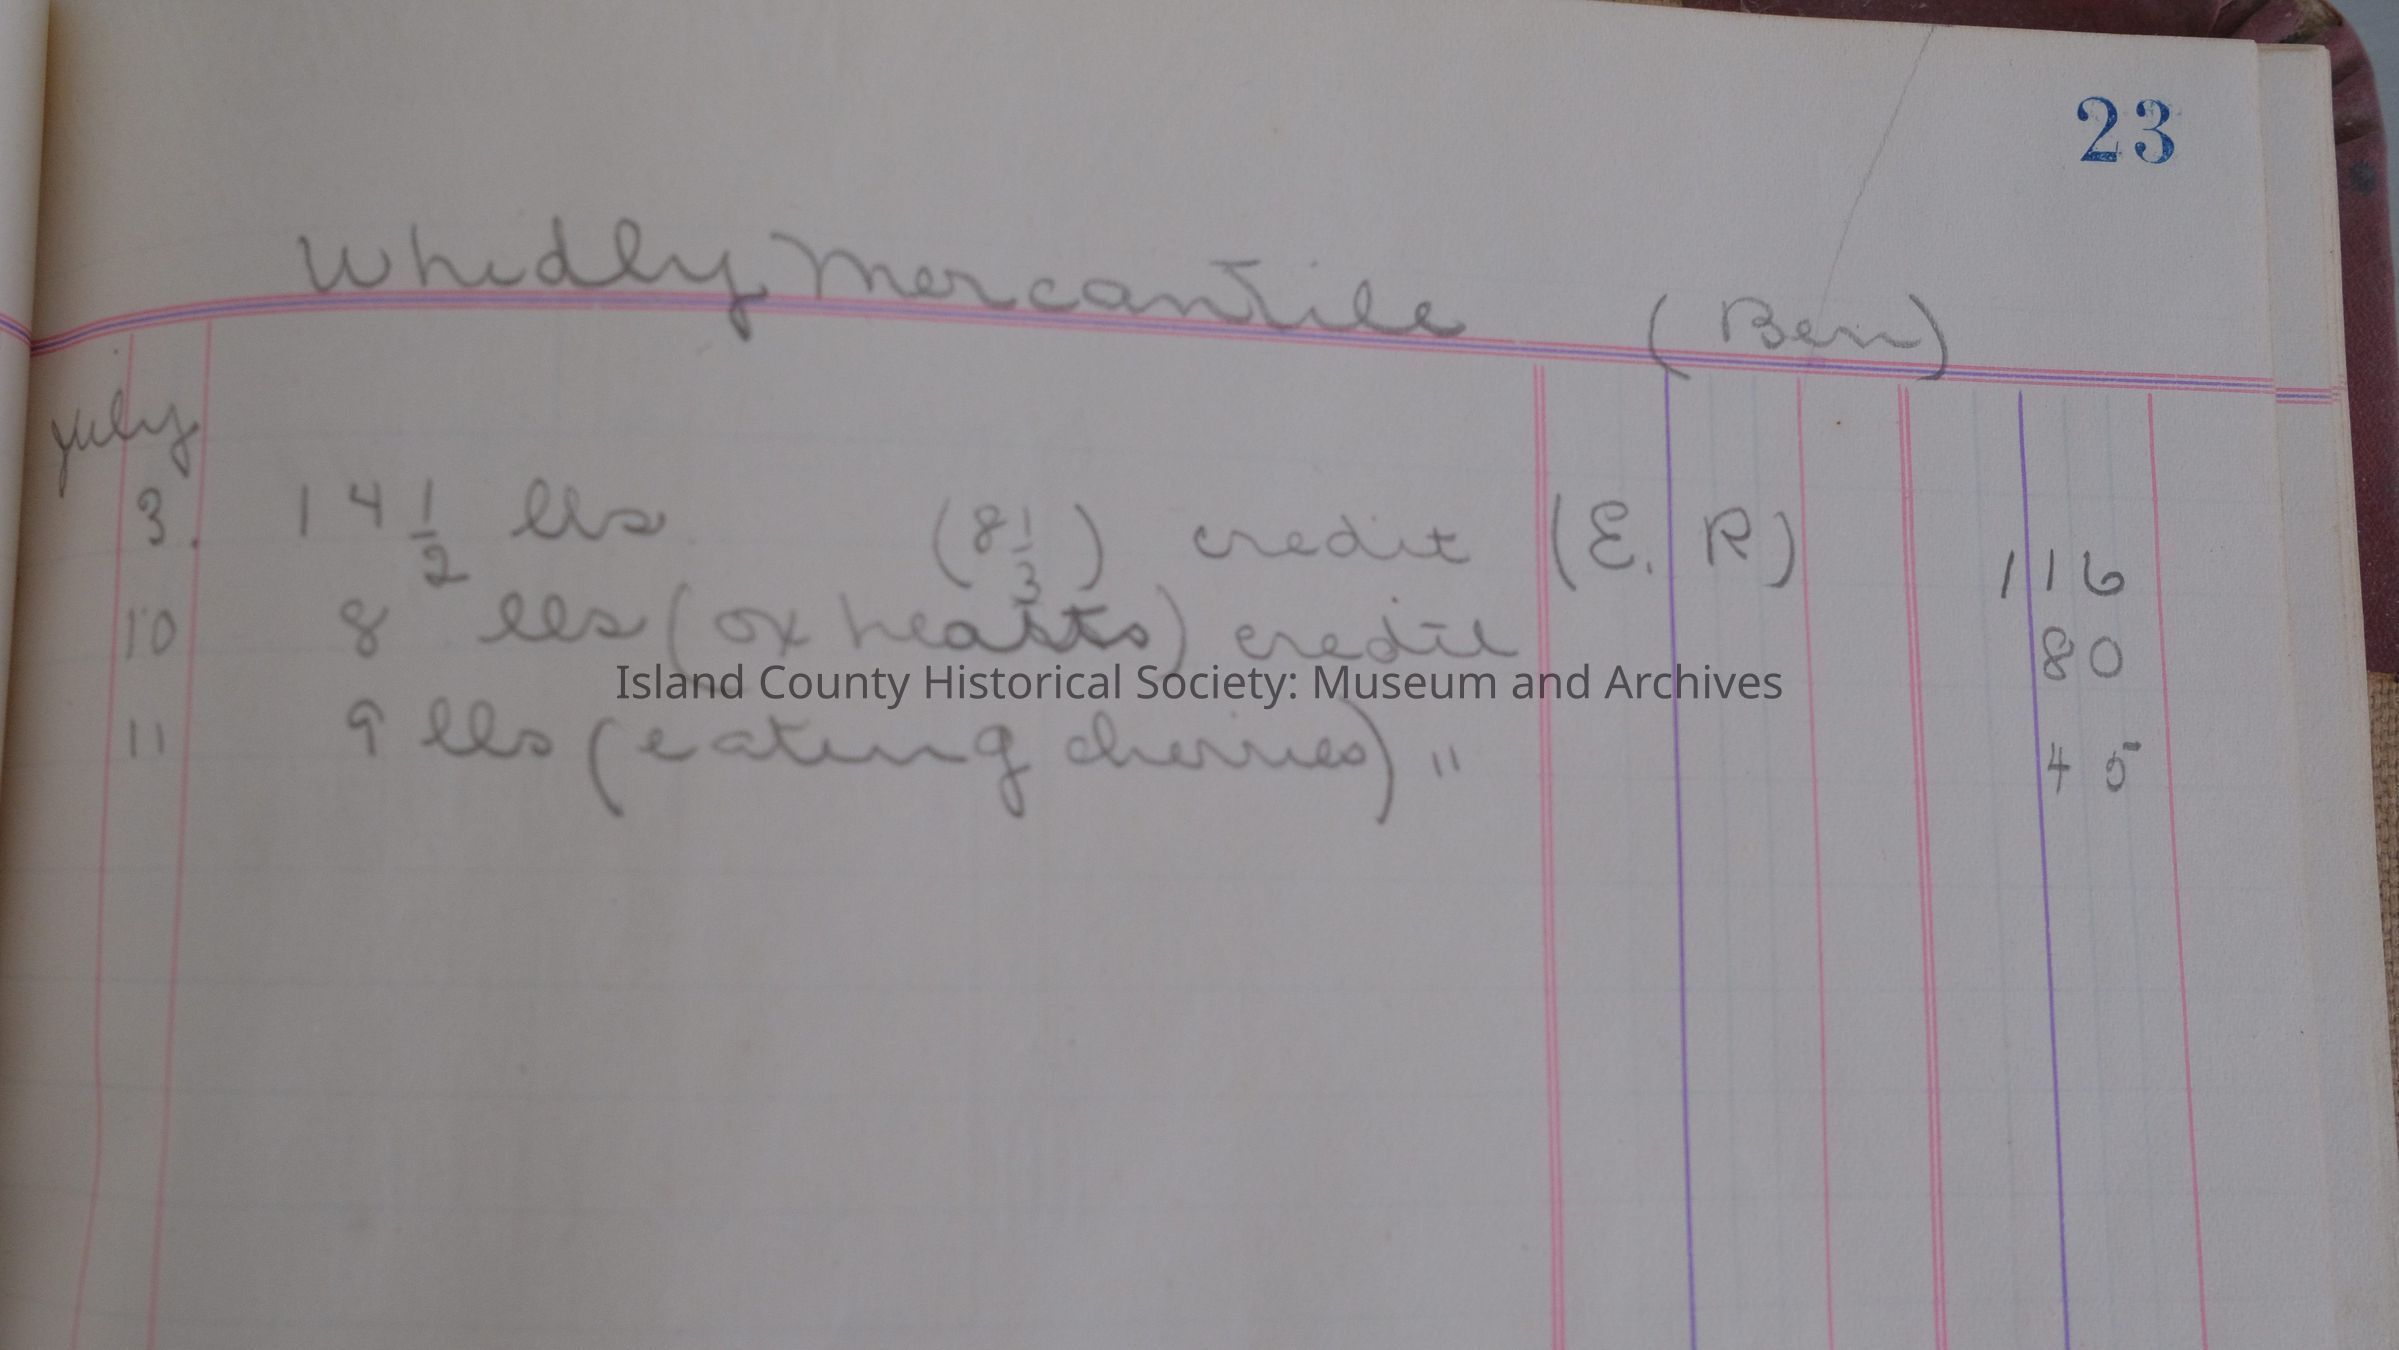 23
Whidly Mercantile (Ben)
July
3. 14 1/2 lbs (8 1/3) credit (E. R) 1 16
10 8 lbs (ox hearts) credit 80
Island County Historical Society: Museum and Archives
11 9 lbs (eating cherries) " 45